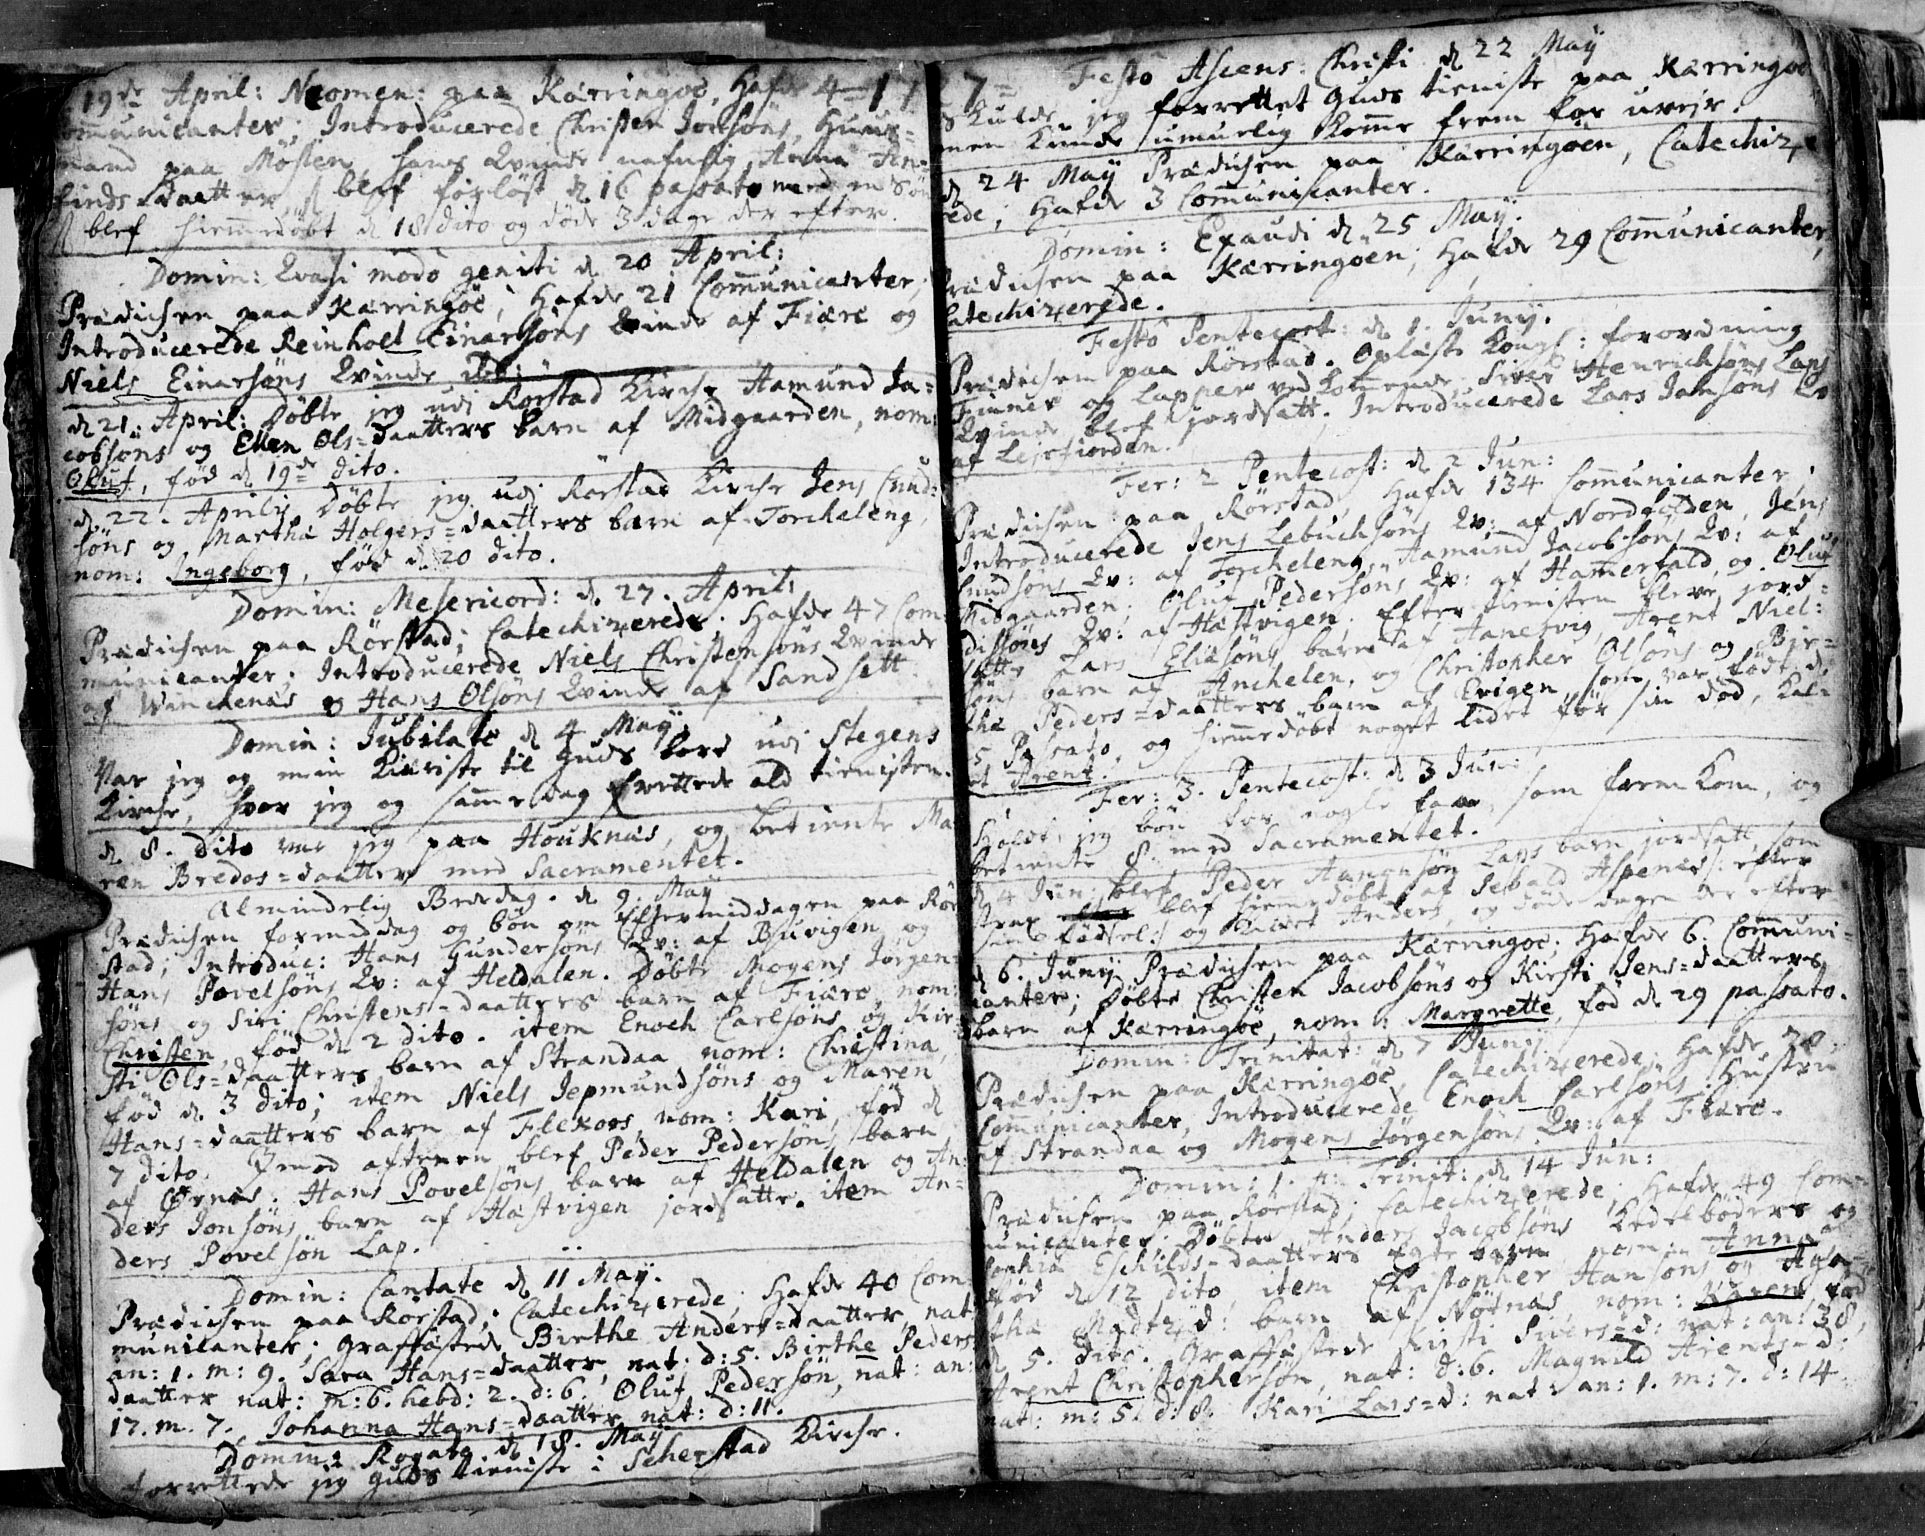 19de April: Neomen: paa Kærringøe, Hafde 4
communicanter; Introducerede Christen Jonsøns, Huus=
mand paa Møsten hans Qvinde nafnlig Anna An=
finds=daatter, blef forløst d. 16 passato med en Søn
blef hiemmedøbt d 18 dito og døde 3 dage der efter.
Domin: Qvasi modo geniti d. 20 April:
Prædichen paa Kærringøe, Hafde 21 Communicanter,
Introducerede Reinholt Einarsøns Qvinde af Fiære og
Niels Einarsøns Qvinde ibb:
d. 21. April: Døbte jeg udi Rørstad Kirche Aamund Ja=
cobsøns og Ellen Ols=daatters barn af Midgaarden, nom:
Oluf, fød d 19de dito.
d. 22. Aprily Døbte jeg udi Rørstad Kirche Jens Cnud=
søns og Martha Holgers=daatters barn af Torcheleng,
nom: Ingeborg, fød d. 20 dito.
Domin: Mesericord: d. 27. April:
Prædichen paa Rørstad; Catechizerede. Hafde 47 Com=
municanter; Introducerede Niels Christensøns Qvinde
af Winchenæs og Hans Olsøns Qvinde af Sandsett.
Domin: Jubilate d 4 May.
Var jeg og min Kiæriste til Guds bord udi Stegens
Kirche, hvor jeg og samme dag forrettede ald tienisten.
d. 8. dito var jeg paa Houknæs, og betiente Ma=
ren Bredes=daatter med Sacramentet.
Almindelig Bededag. d. 9. May
Prædichen formiddag og bøn om Eftermiddagen paa Rør=
stad; Introduc: Hans Gundersøns Qv: af Buvigen og
Hans Povelsøns Qv: af Heldalen. Døbte Mogens Jørgen=
søns og Siri Christens=daatters barn af Fiære, nom:
Christen, fød d. 2 dito. item Enoch Carlsøns og Kir=
sti Ols=daatters barn af Strandaa nom: Christina,
fød d. 3 dito; item Niels Jepmundsøns og Maren
Hans=daatters barn af Flexoos, nom: Kari, fød d
7 dito. Imod aftenen blef Peder Pedersøns barn
af Ørnæs. Hans Povelsøns barn af Heldalen og An=
ders Jonsøns barn af Hæstvigen jordsatte. item An=
ders Povelsøn Lap.
Domin: Cantate d 11 May.
Prædichen paa Rørstad; Catechizerede; Hafde 40 Com=
municanter; Graffæstede Birthe Anders=daatter, nat:
an: 1. m: 9. Sara Hans=daatter, nat: d: 5. Birthe Peders=
daatter nat: m: 6. hebd: 2. d: 6. Oluf Pedersøn, nat: an:
17. m. 7. Johanna Hans=daatter nat: d: 11.
Domin: Rogate d 18. May
forrettede jeg Guds tieniste i Scherstad Kirche.
1727= Festo Ascens: Christi d 22 May
Skulde jeg forrettet Guds tieniste paa Kærringøe
men kunde umuelig komme frem for uvejr.
d 24 May Prædichen paa Kærringøen, Catechize=
rede; Hafde 3 Communicanter.
Domin: Exaudi d. 25 May.
Prædichen paa Kærringøen; Hafde 29 Communicanter,
Catechizerede.
Festo Pentecost: d. 1. Juny.
Prædichen paa Rørstad. Oplæste Kongl: forordning
Finner og Lapper ved Kommende. Siver Henrichsøns Laps
Qvinde blef jordsatt. Introducerede Lars Jamsøns Qv
af Lejefiorden.
Fer: 2 Pentecost: d 2 Jun:
Prædichen paa Rørstad, Hafde 134 Communicanter,
Introducerede Jens Lebuchsøns Qv: af Nordfolden, Jens
Cnudsøns Qv: af Torcheleng, Aamund Jacobsøns Qv: af
Midgaarden, Oluf Pedersøns Qv: af Hamerfald, og Oluf
dissøns Qv: af Hæstvigen. Efter tienisten bleve jord=
satte Lars Eliæsøns barn af Aanesvig, Arent Niel=
søns barn af Anchelen, og Christopher Olsøns og Bir=
the Peders=daatters barn af Evigen, som var født d.
5 Passato, og hiemmedøbt noget lidet før sin død, kal=
det Arent.
Fer: 3. Pentecost: d 3 Jun:
Holdt jeg bøn for nogle faae, som frem kom, og
betiente 8. med Sacramentet.
d 4 Jun: blef Peder Aagensøn Laps barn jordsatt, som
strax blef hiemmedøbt af Sevald Aspenæs /: efter
sin fødsel :/ og kaldet Anders, og døde dagen der efter
d 6. Juny Prædichen paa Kærringøe; Hafde 6. Communi=
canter; Døbte Christen Jacobsøns og Kirsti Jens=daatters
barn af Kærringøe, nom: Margrette, fød d. 29 passato.
Domin: Trinitat: d 7 Juny
Prædichen paa Kærringøe, Catechizerede; Hafde 28.
Communicanter, Introducerede Enoch Carlsøns Hustru
af Strandaa og Mogens Jørgensøns Qv: af Fiære.
Domin: 1. p: Trinit: d 14 Jun:
Prædichen paa Rørstad; Catechizerede; Hafde 49 Com=
municanter; Døbte Anders Jacobsøns Kedelbøders og
Sophia Eschilds=daatters Egte barn nom: Anna
fød d 12 dito, item Christopher Hansøns og Aga=
tha Madtz d: barn af Nøtnæs nom: Karen, fød
d 5. dito. Graffæstede Kirsti Sivers=d: nat: an: 38,
Arent Christophersøn, nat: d: 6. Magnild Arents=d:
nat: m: 5. d: 8. Kari Lars=d: nat: an: 1. m: 7. d: 14.